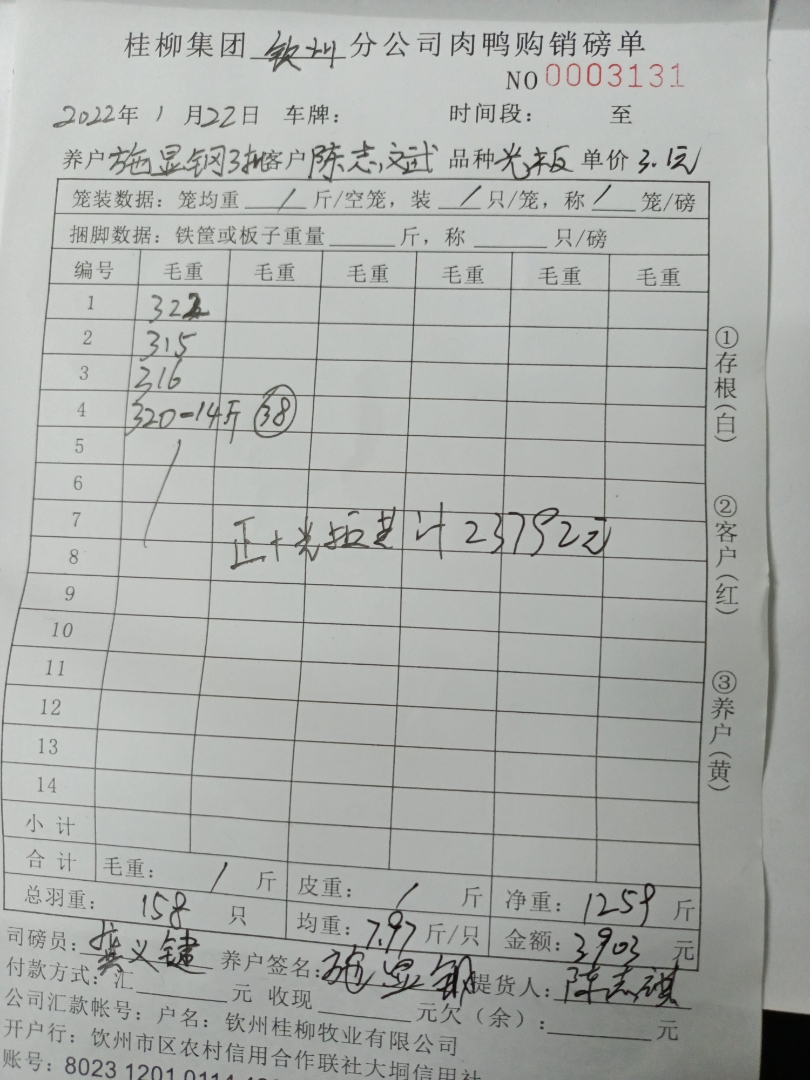 桂柳集团 钦州 分公司肉鸭购销磅单
NO 0003131
2022年 1 月22日 车牌： 时间段： 至
养户施显钢3批客户陈志文武 品种光板 单价 3.1元
笼装数据：笼均重 / 斤/空笼，装 / 只/笼，称 / 笼/磅
捆脚数据：铁筐或板子重量______斤，称______只/磅
编号 毛重 毛重 毛重 毛重 毛重 毛重
1 322
2 315
3 316
4 320-14斤 38
5
6
7 正+光板共计23792元
8
9
10
11
12
13
14
小 计
合 计 毛重： / 斤 皮重： / 斤 净重：1259 斤
总羽重： 158 只 均重：7.97 斤/只 金额：3903 元
司磅员：龚义键 养户签名：施显钢 提货人：陈志祺
付款方式：汇______元 收现______元欠（余）：______元
公司汇款帐号：户名：钦州桂柳牧业有限公司
开户行：钦州市区农村信用合作联社大垌信用社
账号：8023 1201 0114
①存根（白）
②客户（红）
③养户（黄）